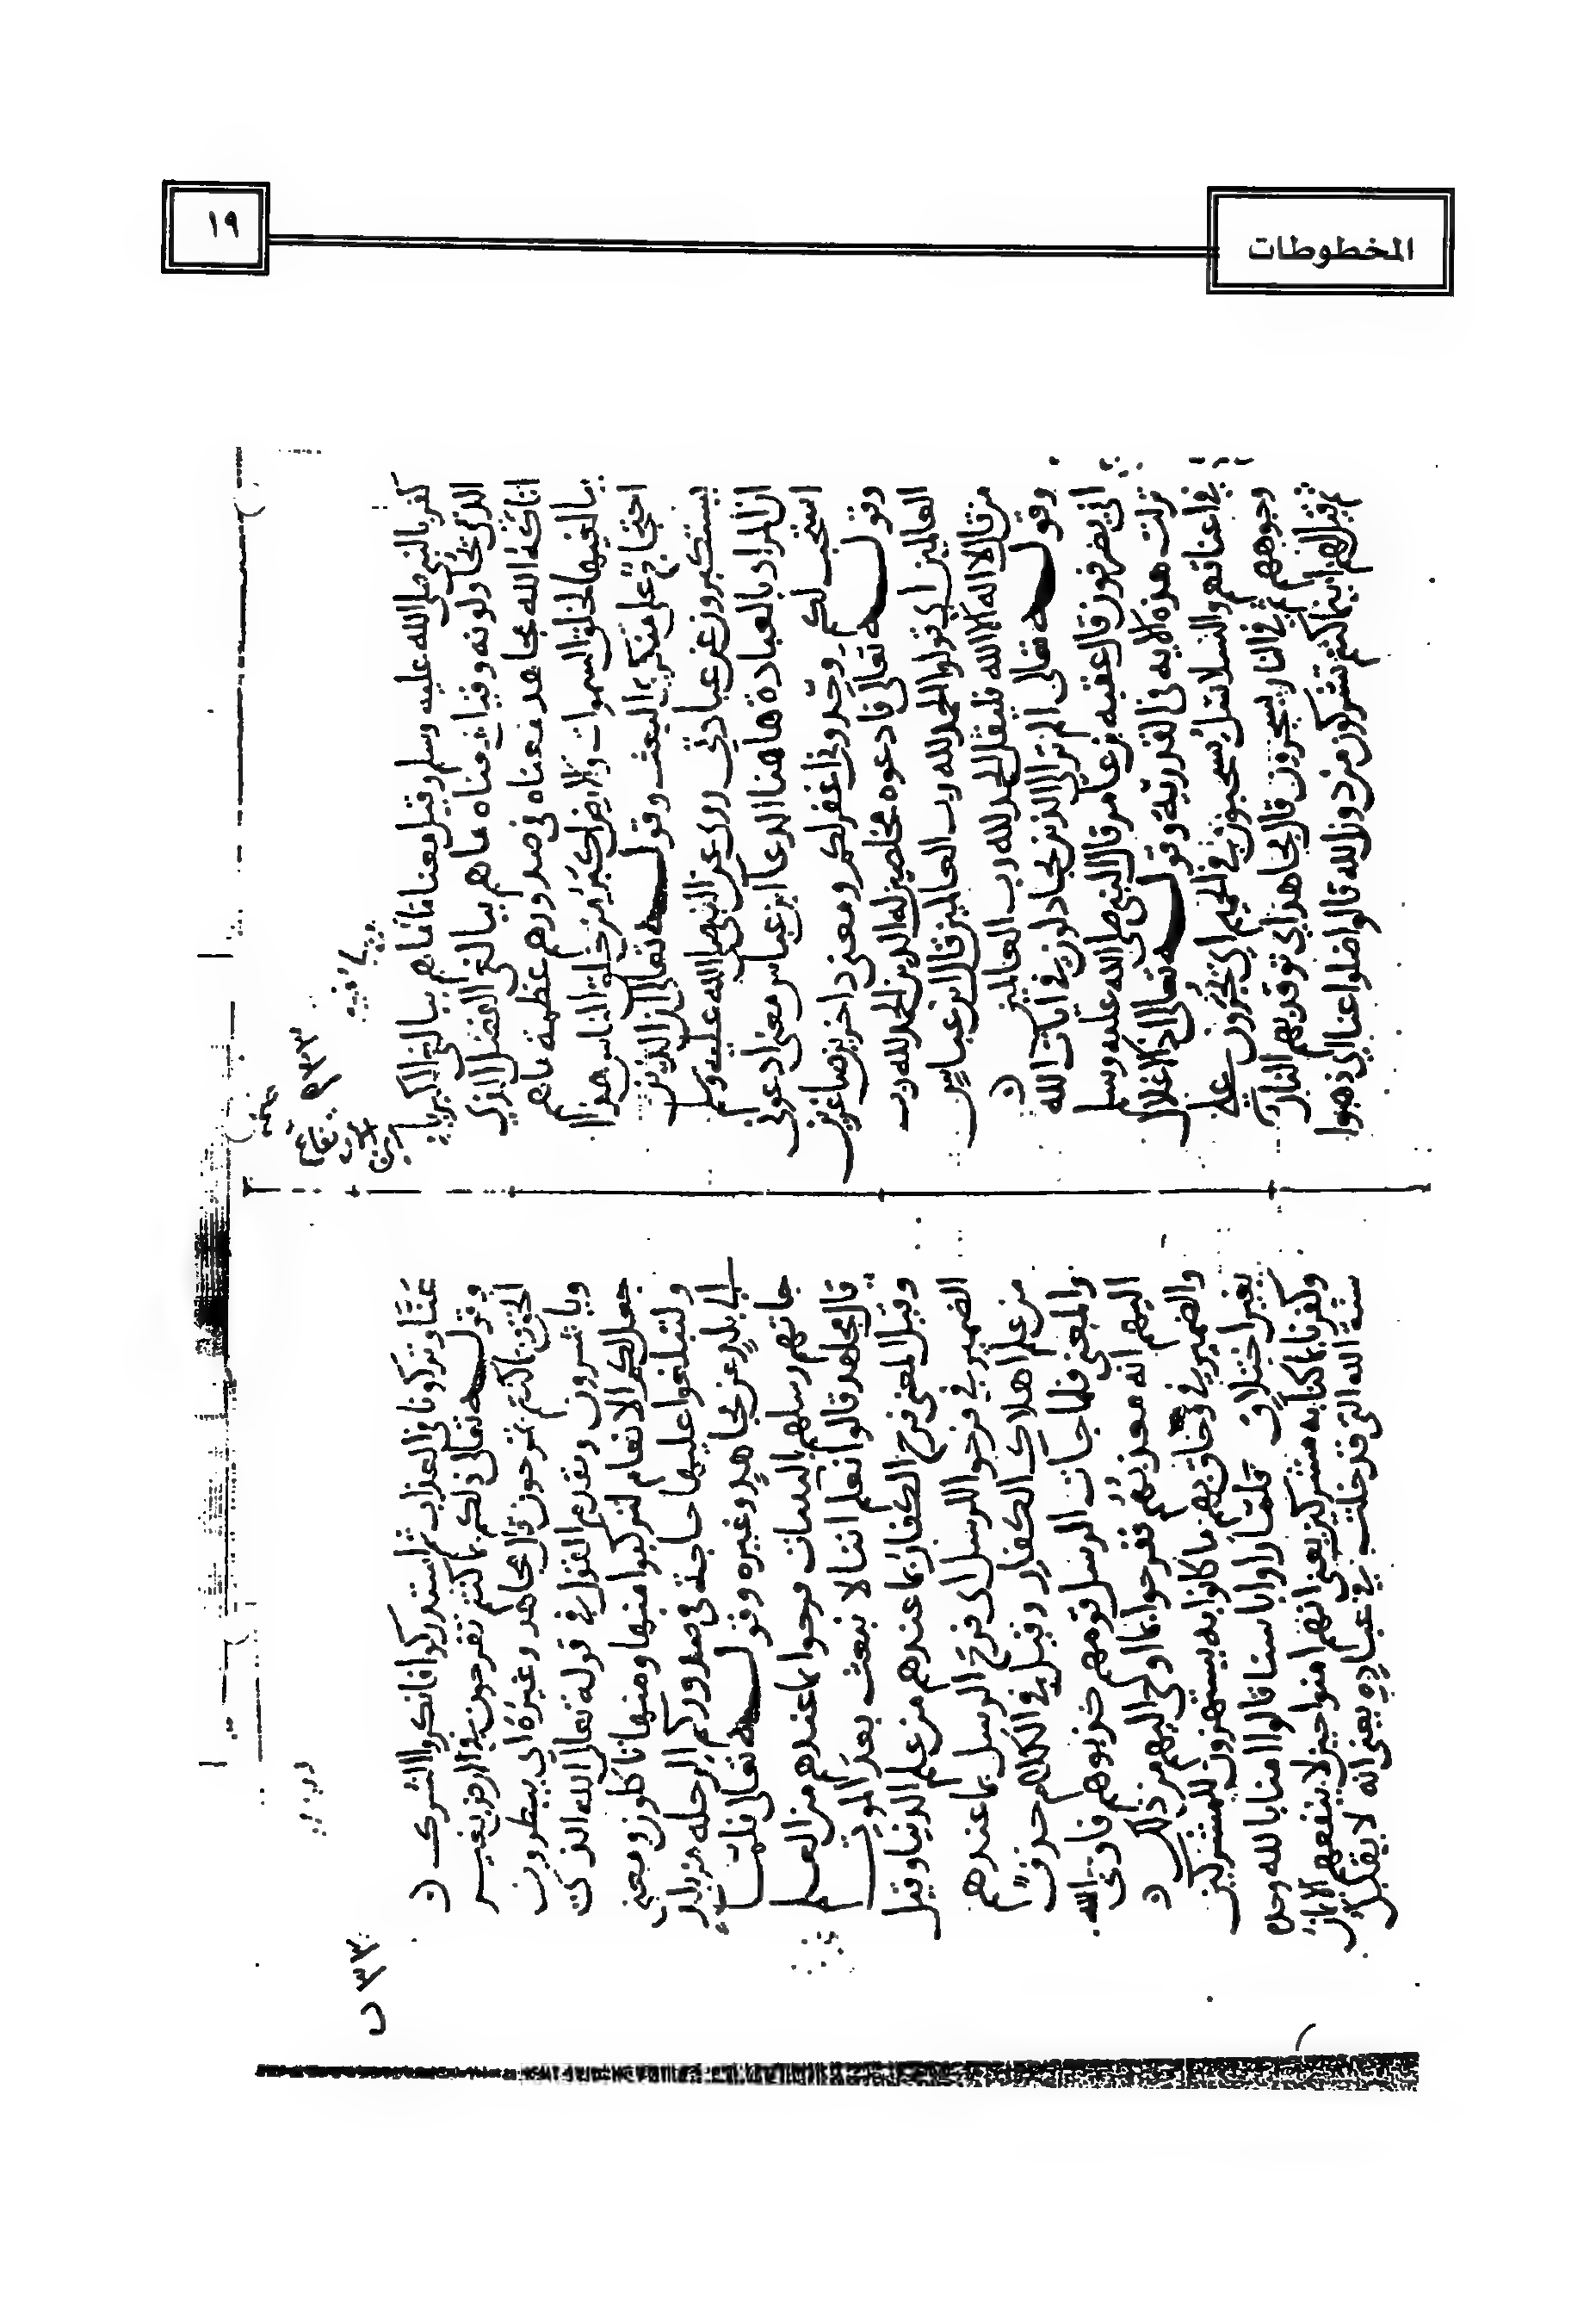 المخطوطات
١٩
كفر بالنبي صلى الله عليه وسلم وقيل معنا ما هم ببالغي الكبرياء
الذي يحاولونه وقيل معناه ما هم ببالغي الفضل الذي
اتاكه الله مجاهد معناه في صدورهم عظمة ما هم
ببالغيها لخلق السموات والارض اكبر من خلق الناس هذا
احتجاج على منكري البعث وقوله تعالى ان الذين
يستكبرون عن عبادتي روي عن النبي صلى الله عليه وسلم
ان المراد بالعبادة هاهنا الدعا ابن عباس معنى ادعوني
استجب لكم وحدوني اغفر لكم ومعنى داخرين صاغرين
وقوله تعالى فادعوه مخلصين له الدين الحمد لله رب
العالمين اي قولوا الحمد لله رب العالمين قال ابن عباس
من قال لا اله الا الله فليقل الحمد لله رب العالمين
وقوله تعالى الم تر الى الذين يجادلون في ايات الله
انى يصرفون قال عقبة بن عامر قال النبي صلى الله عليه وسلم
نزلت هذه الاية في القدرية وقوله تعالى اذ الاغلال
في اعناقهم والسلاسل يسحبون في الحميم اي يجرون على
وجوههم ثم في النار يسجرون قال مجاهد اي توقد بهم النار
ثم قيل لهم اينما كنتم تشركون من دون الله قالوا ضلوا عنا اي ذهبوا
٣٣
عنا وتركونا في العذاب ثم استدركوا فانكروا الشرك
وقوله تعالى ذلكم بما كنتم تفرحون في الارض بغير
الحق وبما كنتم تمرحون قال مجاهد وغيره اي يبطرون
ويأشرون وتقدم القول في قوله تعالى الله الذي
جعل لكم الانعام لتركبوا منها ومنها تاكلون ومعنى
ولتبلغوا عليها حاجة في صدوركم الرحلة من بلد
الى بلد عن مجاهد وغيره وقوله تعالى فلما
جاتهم رسلهم بالبينات فرحوا بما عندهم من العلم
قال مجاهد قالوا نحن اعلم اننا لا نبعث بعد الموت
وقيل المعنى فرح الكفار بما عندهم من علم الدنيا وقيل
الضمير في فرحوا للرسل اي فرح الرسل بما عندهم
من علم اهلاك الكفار وقيل في الكلام حذف
والمعنى فلما جات الرسل قومهم كذبوهم فاوحى الله
اليهم انه معذبهم ففرحوا بما اوحي اليهم من ذلك
والضمير في وحاق بهم ما كانوا به يستهزون للمشركين
بغير اختلاف فلما راوا باسنا قالوا امنا بالله وحده
وكفرنا بما كنا به مشركين يعني انهم امنوا حين لا ينفعهم الايمان
سنة الله التي قد خلت في عباده يعني انه لا يقبل